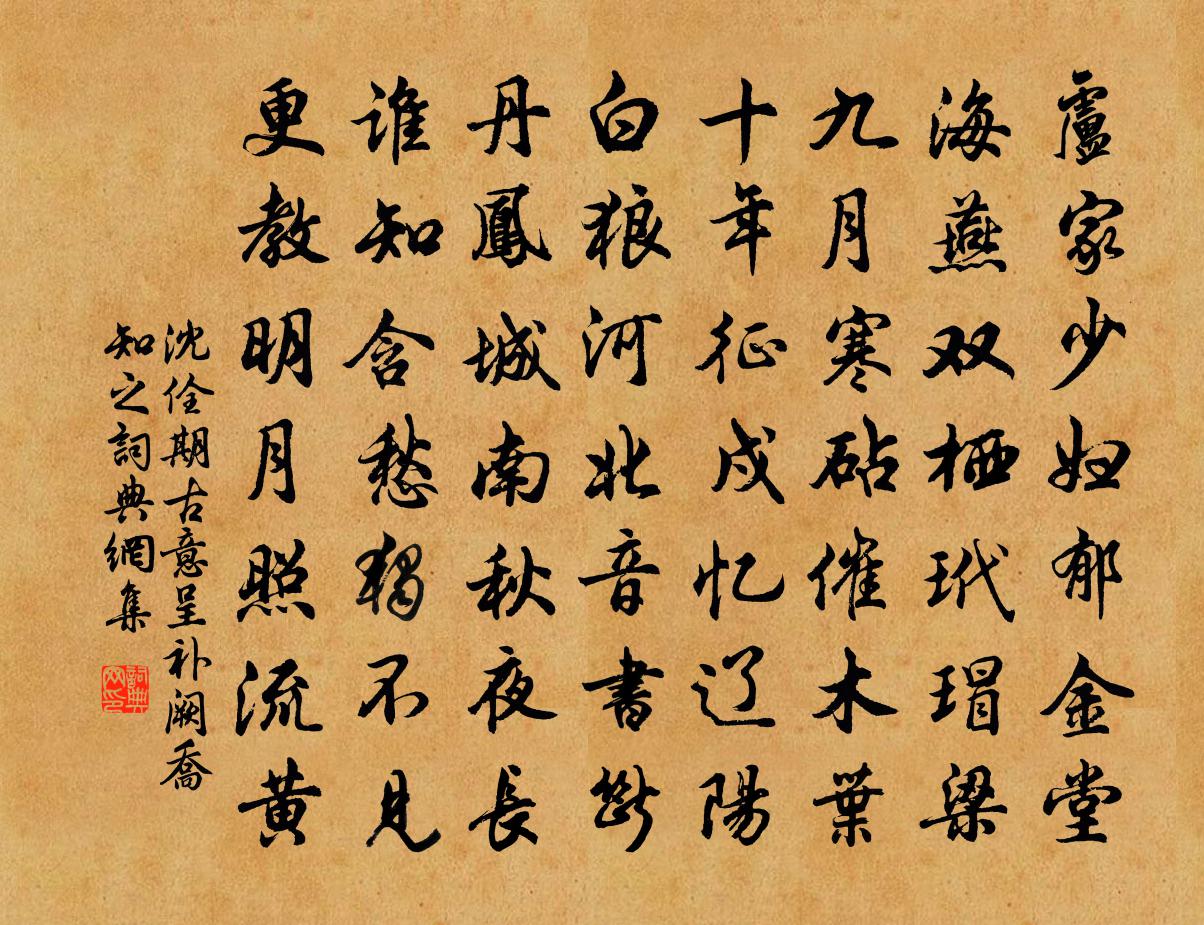 盧家少妇郁金堂
海燕双栖玳瑁梁
九月寒砧催木葉
十年征戍忆辽陽
白狼河北音書斷
丹鳳城南秋夜長
谁知含愁獨不見
更教明月照流黄
沈佺期古意呈补阙喬
知之詞典網集
詞典
网印